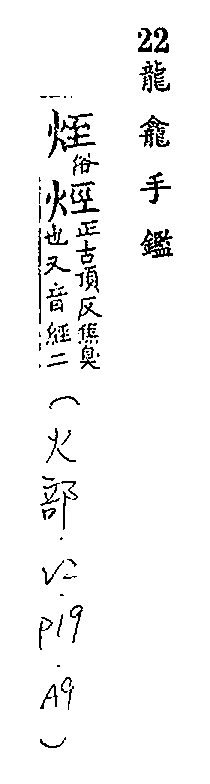 22龍龕手鑑
俗烴正古頂反焦臭
也又音經二
(火部.V2.P19.A9)